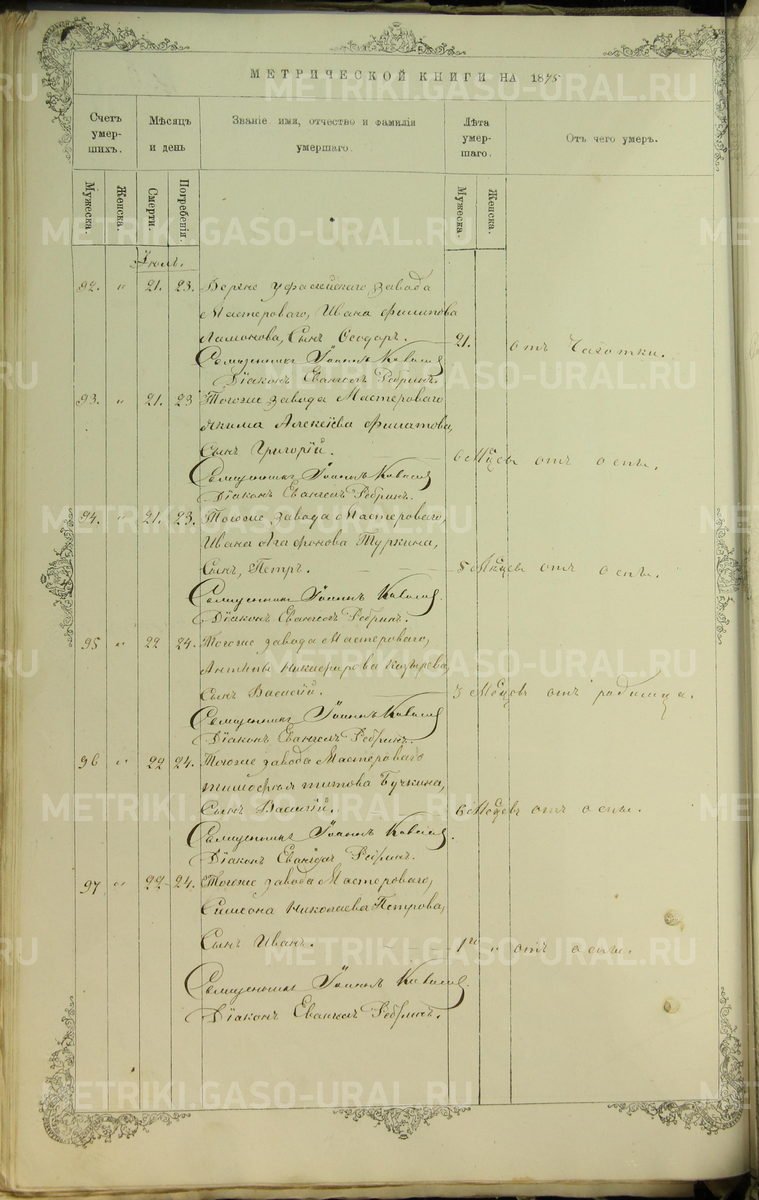 МЕТРИЧЕСКОЙ КНИГИ НА 1875
Счетъ умер-шихъ.
Мѣсяцъ и день
Званіе имя, отчество и фамилія умершаго.
Лѣта умер-шаго.
Отъ чего умеръ.
Мужеска.
Женска.
Смерти.
Погребенія.
Мужеска.
Женска.
Іюль.
92. " 21. 23. Верхне Уфалейскаго завода
Мастероваго, Ивана Филипова
Сынъ Ѳеодоръ. 21. отъ Чахотки.
Священникъ Іоаннъ
Діаконъ Евангелъ Ребринъ.
93. " 21. 23 Тогоже завода Мастероваго
Якима Алексѣева Филатова,
Сынъ Григорій. 6 Мѣсцъ отъ оспы.
Священникъ Іоаннъ
Діаконъ Евангелъ Ребринъ.
94. " 21. 23. Тогоже завода Мастероваго,
Ивана Агафонова Туркина,
Сынъ, Петръ. 8 Мѣсцъ отъ оспы.
Священникъ Іоаннъ
Діаконъ Евангелъ Ребринъ.
95 " 22 24. Тогоже завода Мастероваго,
Антипы Никифирова
Сынъ Василій. 3 Мѣсцъ отъ родимца.
Священникъ Іоаннъ
Діаконъ Евангелъ Ребринъ.
96 " 22 24. Тогоже завода Мастероваго
Тимофея Титова Бучкина,
Сынъ Василій. 6 Мѣсцъ отъ оспы.
Священникъ Іоаннъ
Діаконъ Евангелъ Ребринъ.
97 " 22 24. Тогоже завода Мастероваго,
Симеона Николаева Петрова,
Сынъ Иванъ. 1го " отъ оспы.
Священникъ Іоаннъ
Діаконъ Евангелъ Ребринъ.
METRIKI.GASO-URAL.RU